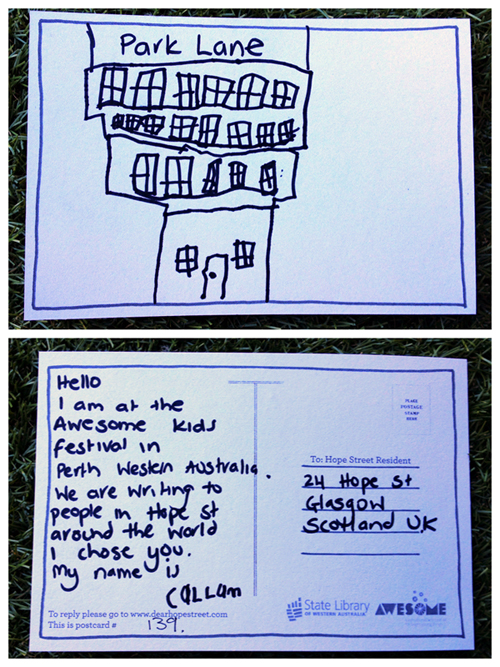 Park Lane
Hello
I am at the
Awesome kids
festival in
Perth Western Australia.
We are writing to
people in Hope St
around the world
I chose you.
My name is
CALLUM
To reply please go to www.dearhopestreet.com
This is postcard # 139.
PLACE
POSTAGE
STAMP
HERE
To: Hope Street Resident
24 Hope St
Glasgow
Scotland UK
State Library
OF WESTERN AUSTRALIA
AWESOME